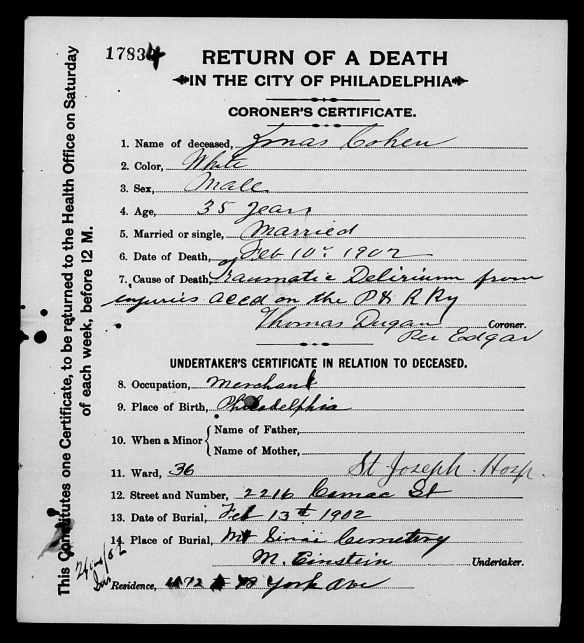 17834
RETURN OF A DEATH
IN THE CITY OF PHILADELPHIA
CORONER'S CERTIFICATE.
1. Name of deceased, Jonas Cohen
2. Color, White
3. Sex, Male
4. Age, 35 Years
5. Married or single, Married
6. Date of Death, Feb 10" 1902
7. Cause of Death, Traumatic Delirium from
injuries accd on the P & R Ry
Thomas Dugan Coroner.
Per Edgar
UNDERTAKER'S CERTIFICATE IN RELATION TO DECEASED.
8. Occupation, Merchant
9. Place of Birth, Philadelphia
10. When a Minor { Name of Father,
Name of Mother,
11. Ward, 36 St Joseph Hosp.
12. Street and Number, 2216 Camac St
13. Date of Burial, Feb 13th 1902
14. Place of Burial, Mt Sinai Cemetery
M. Einstein Undertaker.
Residence, York Ave
This Constitutes one Certificate, to be returned to the Health Office on Saturday
of each week, before 12 M.